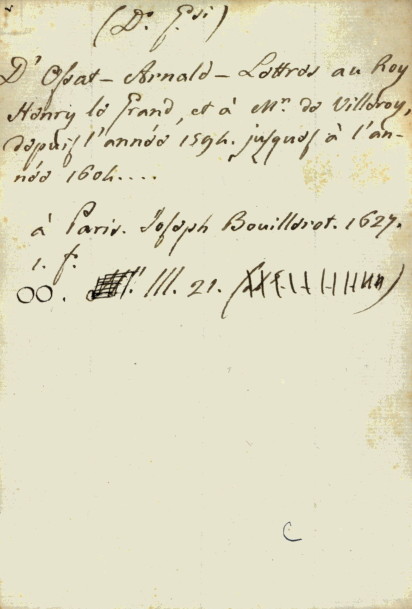 (Dr. Gsi)
D'Ossat - Arnald - Lettres au Roy
Henry le Grand, et à Mr. de Villeroy,
depuis l'année 1594. jusques à l'an-
née 1604....
à Paris. Joseph Bouillerot. 1627.
1. f.
OO. III. 21.
C